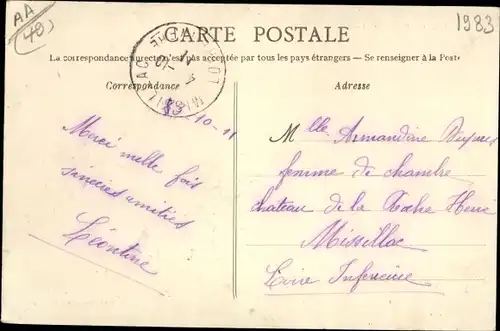 AA
(40)
CARTE POSTALE
1983
La correspondance au recto n'est pas acceptée par tous les pays étrangers — Se renseigner à la Poste
Correspondance
Adresse
MISSILLAC
8-10-11
Merci mille fois
sincères amitiés
Léontine
Mlle Armandine
femme de chambre
chateau de la Roche
Missillac
Loire Inférieure